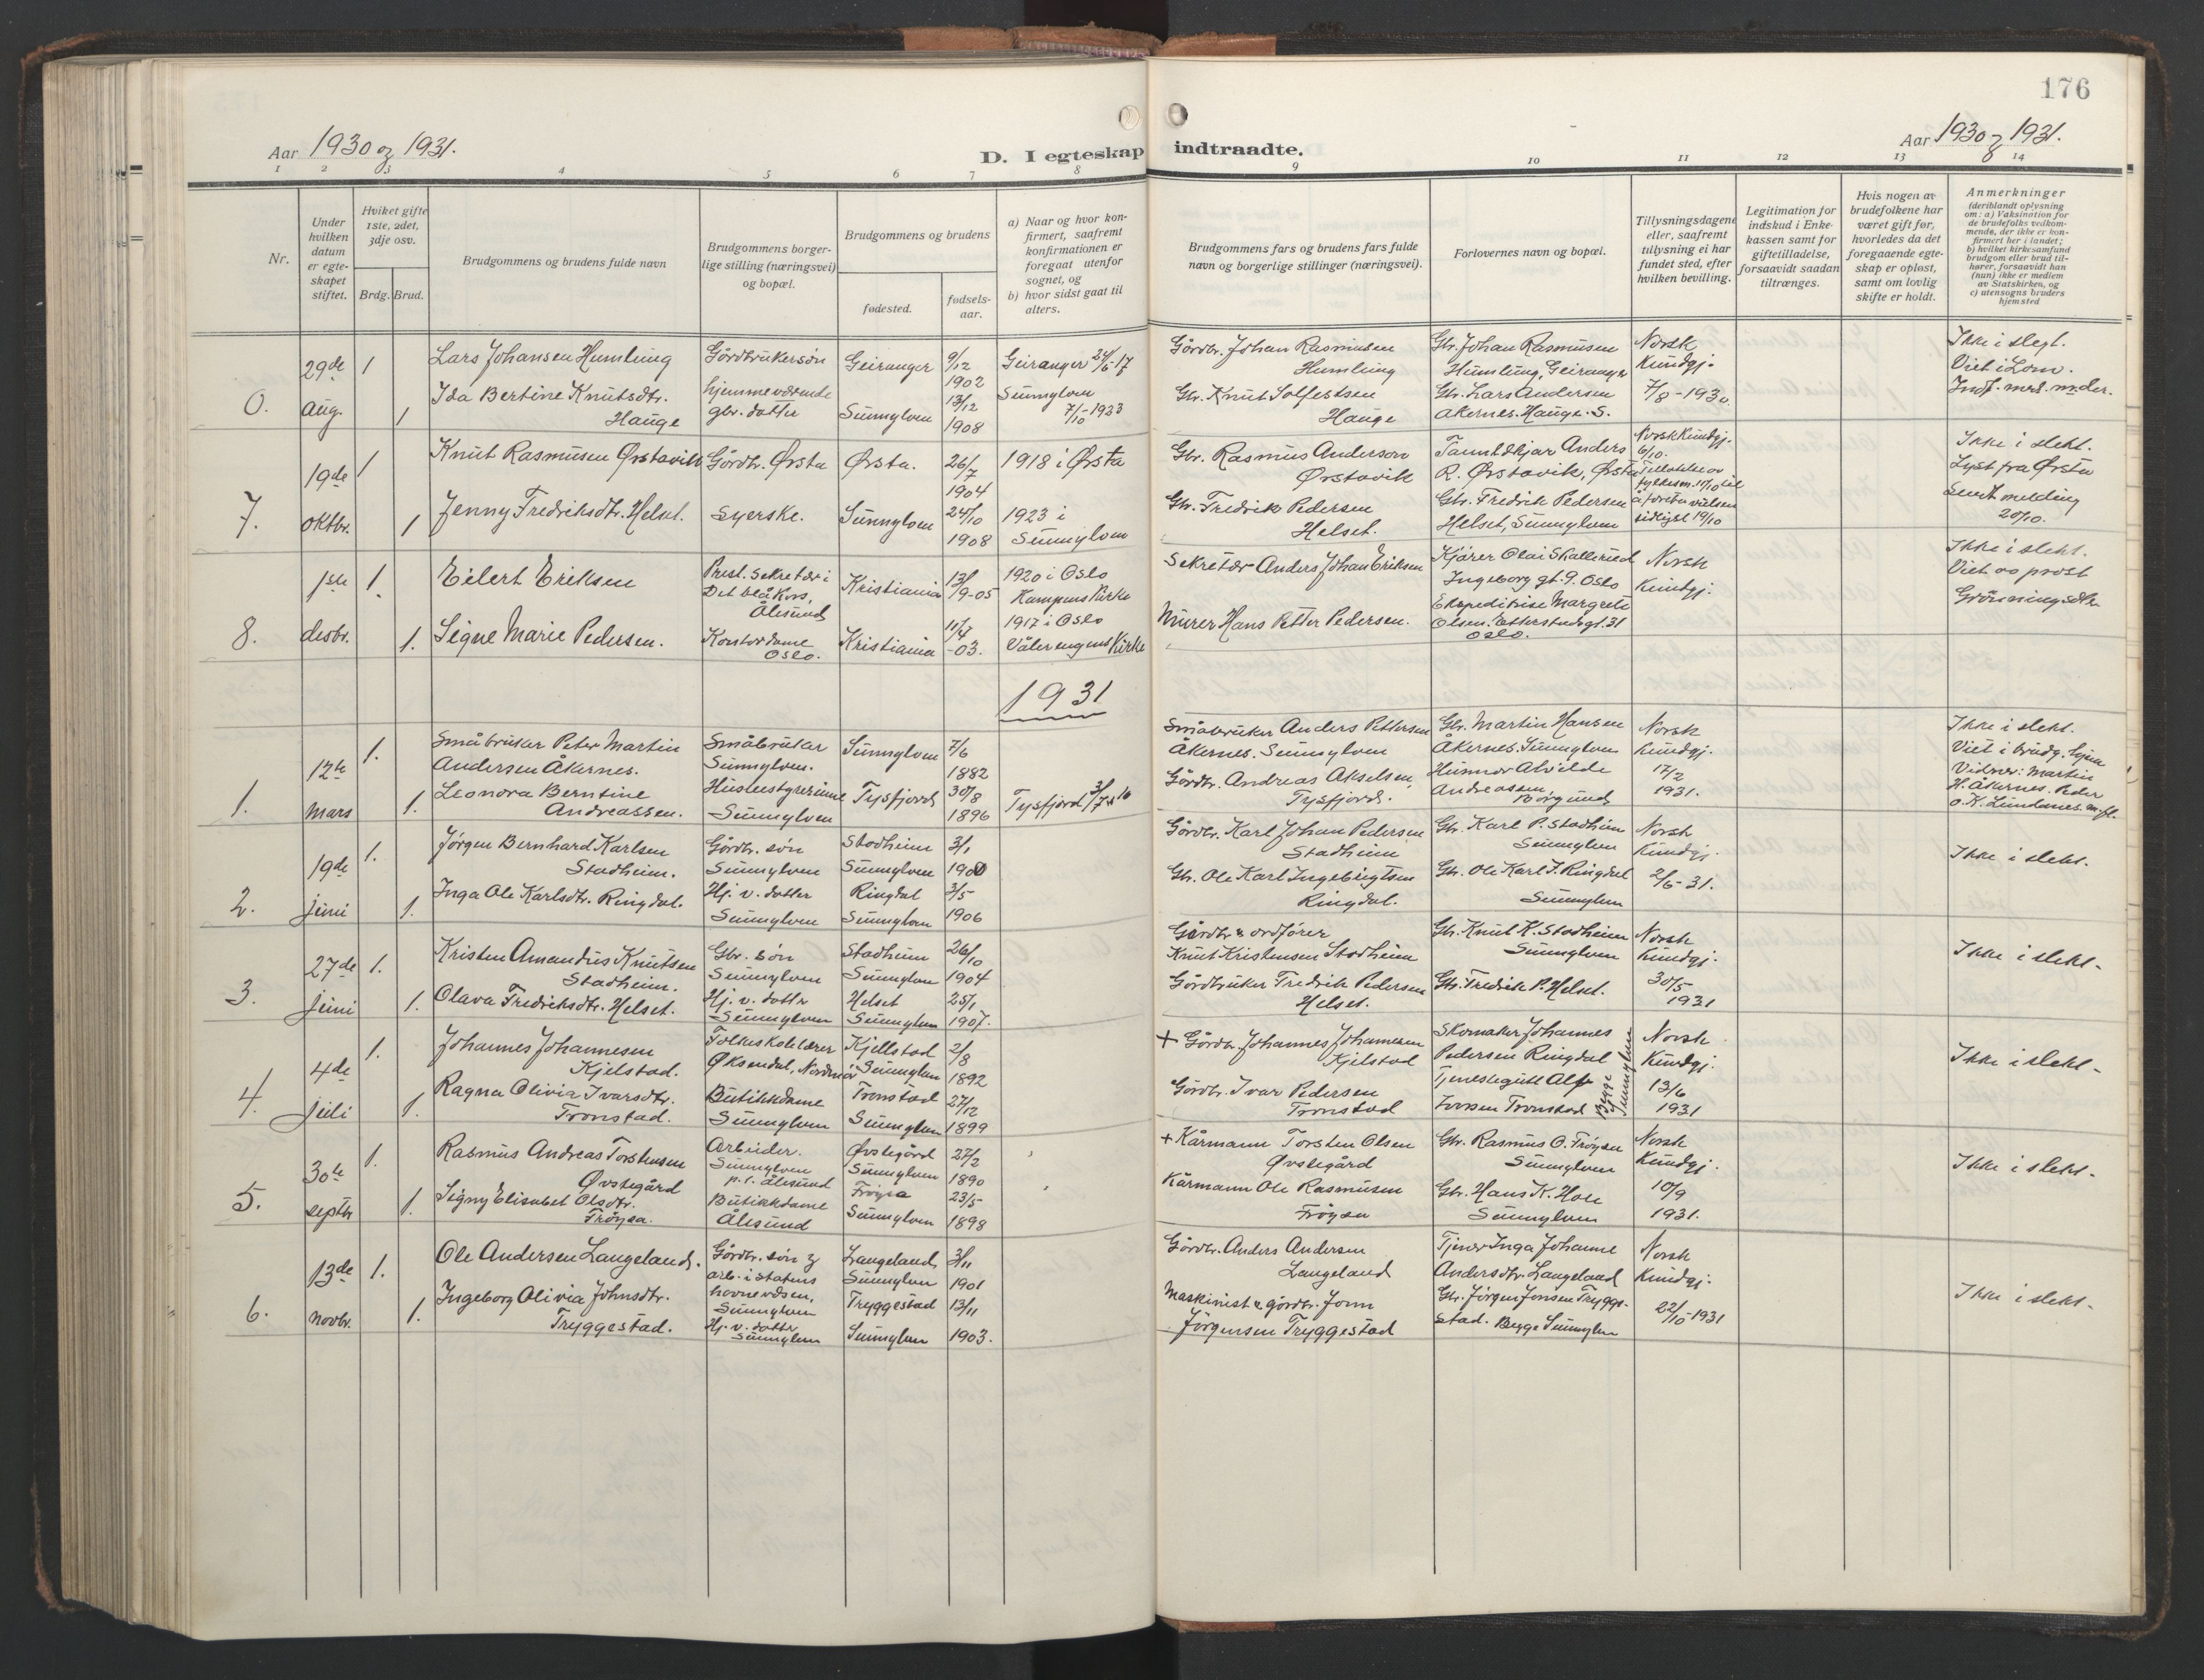 176
Aar 1930 og 1931.
D. I egteskap indtraadte.
Aar 1930 og 1931.
1 2 3 4 5 6 7 8 9 10 11 12 13 14
Nr.
Under hvilken datum er egteskapet stiftet.
Hviket gifte 1ste, 2det, 3dje osv.
Brdg. Brud.
Brudgommens og brudens fulde navn
Brudgommens borgerlige stilling (næringsvei) og bopæl.
Brudgommens og brudens
fødested.
fødselsaar.
a) Naar og hvor konfirmert, saafremt konfirmationen er foregaat utenfor sognet, og
b) hvor sidst gaat til alters.
Brudgommens fars og brudens fars fulde navn og borgerlige stillinger (næringsvei).
Forlovernes navn og bopæl.
Tillysningsdagene eller, saafremt tillysning ei har fundet sted, efter hvilken bevilling.
Legitimation for indskud i Enkekassen samt for giftetilladelse, forsaavidt saadan tiltrænges.
Hvis nogen av brudefolkene har været gift før, hvorledes da det foregaaende egteskap er opløst, samt om lovlig skifte er holdt.
Anmerkninger
(deriblandt oplysning om: a) Vaksination for de brudefolks vedkommende, der ikke er konfirmert her i landet; b) hvilket kirkesamfund brudgom eller brud tilhører, forsaavidt han (hun) ikke er medlem av Statskirken, og c) utensogns bruders hjemsted
29de aug. 1 1
Lars Johansen Humling
Gårdbrukersøn
Geiranger
9/12 1902
Geiranger 24/6-17
Gårdbr. Johan Rasmussen Humling
Gbr. Johan Rasmusen Humling, Geiranger
Norsk Kundgj. 7/8-1930.
Ikke i slegt.
Viet i Lom.
Ida Bertine Knutsdtr. Hauge
hjemmeværende gbr. datter
Sunnylven
13/12 1908
Sunnylven 7/10-1923
Gbr. Knut Solfestsen Hauge
Gbr. Lars Andersen Akernes. Hauge. S.
7. 19de oktbr. 1 1
Knut Rasmusen Ørstavik
Gårdbr. Ørsta
Ørsta.
26/7 1904
1918 i Ørsta
Gbr. Rasmus Anderson Ørstavik
Anders R. Ørstavik, Ørsta
Norsk Kundgj. 6/10.
Ikke i slekt.
Lyst fra Ørsta
Sendt melding 20/10.
Jenny Fredriksdtr. Helset.
Syerske.
Sunnylven
24/10 1908
1923 i Sunnylven
Gbr. Fredrik Pedersen Helset.
Gbr. Fredrik Pedersen Helset, Sunnylven
sidligst 19/10
8. 1ste desbr. 1. 1.
Eilert Eriksen
Prest. Sekretær i Det blå Kors, Ålesund
Kristiania
13/9-05
1920 i Oslo Kampens Kirke
Sekretær Anders Johan Eriksen
Kjører Olai Skallerud Ingeborg gt. 9. Oslo
Norsk Kundgj.
Ikke i slekt.
Viet av prost
Signe Marie Pedersen.
Kontordame Oslo.
Kristiania
11/4 -03.
1917 i Oslo Vålerengens Kirke
Murer Hans Petter Pedersen.
Ekspeditrise Margrete Olsen. Etterstadsgt. 31 Oslo.
1931
1. 12te mars 1. 1.
Småbruker Peter Martin Andersen Åkernes.
Småbruker Sunnylven.
Sunnylven
7/6 1882
Småbruker Anders Pettersen Åkernes. Sunnylven
Gbr. Martin Hansen Åkernes. Sunnylven
Norsk Kundgj. 17/2 1931.
Ikke i slekt.
Viet i brudg. hjem
Vidner: Martin H. Åkernes. Peder O. K. Lundanes m.fl.
Leonora Berntine Andreassen.
Husbestyrerinne Sunnylven
Tysfjord
30/8 1896
Tysfjord
Gårdbr. Andreas Akselsen, Tysfjord.
Alvilde Andreasen, Borgund
2. 19de juni 1. 1.
Jørgen Bernhard Karlsen Stadheim.
Gårdbr. søn Sunnylven
Stadheim Sunnylven
3/1 1900
Gårdbr. Karl Johan Pedersen Stadheim
Gbr. Karl P. Stadheim Sunnylven
Norsk Kundgj. 2/6-31.
Ikke i slekt.
Inga Ole Karlsdtr. Ringdal.
Hj. v. datter Sunnylven
Ringdal Sunnylven
3/5 1906
Gbr. Ole Karl Ingebrigtsen Ringdal.
Gbr. Ole Karl I. Ringdal Sunnylven
3. 27de juni 1. 1.
Kristen Amandus Knutsen Stadheim.
Gbr. søn Sunnylven
Stadheim Sunnylven
26/10 1904
Gårdbr & ordfører Knut Kristensen Stadheim
Gbr. Knut K. Stadheim Sunnylven
Norsk Kundgj. 30/5 1931
Ikke i slekt.
Olava Fredriksdtr. Helset.
Hj. v. datter Sunnylven
Helset Sunnylven
25/1 1907.
Gårdbruker Fredrik Pedersen Helset.
Gbr. Fredrik P. Helset.
4. 4de juli 1. 1.
Johannes Johannesen Kjelstad.
Folkeskolelærer Øksendal, Nordmør
Kjellstad Sunnylven
2/8 1892
+ Gårdbr. Johannes Johannesen Kjelstad
Skomaker Johannes Pedersen Ringdal
Begge Sunnylven
Norsk Kundgj. 13/6 1931
Ikke i slekt.
Ragna Olivia Ivarsdtr. Tronstad.
Butikkdame Sunnylven
Tronstad Sunnylven
27/12 1899
Gårdbr. Ivar Pedersen Tronstad
Tjenestegutt Alf Ivarsen Tronstad
5. 30te septbr 1. 1.
Rasmus Andreas Torstensen Øvstegård
Arbeider. Sunnylven p.t. Ålesund
Øvstegård Sunnylven
27/2 1890
+ Kårmann Torsten Olsen Øvstegård
Gbr. Rasmus O. Frøysa Sunnylven
Norsk Kundgj. 10/9 1931.
Ikke i slekt.
Signy Elisabet Olsdtr. Frøysa.
Butikkdame Ålesund
Frøysa Sunnylven
23/5 1898
Kårmann Ole Rasmusen Frøysa
Gbr. Hans K. Hole Sunnylven
6. 13de novbr. 1. 1.
Ole Andersen Langeland.
Gårdbr. søn & arb. i statens havnevesen, Sunnylven
Langeland, Sunnylven
3/11 1901
Gårdbr. Anders Andersen Langeland
Tjener Inga Johanne Andersdtr. Langeland
Norsk Kundgj. 22/10-1931
Ikke i slekt.
Ingeborg Olivia Johnsdtr. Tryggestad.
Hj. v. datter Sunnylven
Tryggestad Sunnylven
13/11 1903.
Maskinist & gårdbr. Jonn Jørgensen Tryggestad
Gbr. Jørgen Jonsen Tryggestad. Begge Sunnylven